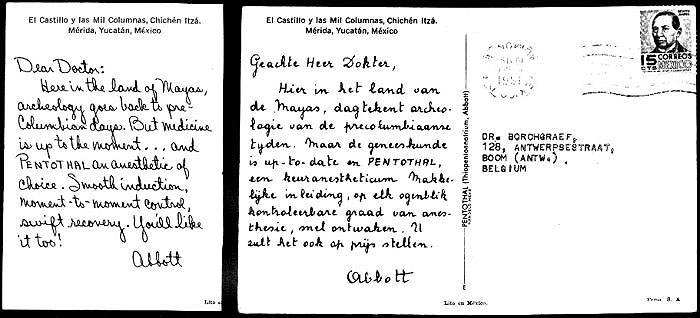 El Castillo y las Mil Columnas, Chichén Itzá.
Mérida, Yucatán, México
Dear Doctor:
Here in the land of Mayas,
archeology goes back to pre-
Columbian days. But medicine
is up to the moment... and
PENTOTHAL an anesthetic of
choice. Smooth induction,
moment-to-moment control,
swift recovery. You'll like
it too!
Abbott
El Castillo y las Mil Columnas, Chichén Itzá.
Mérida, Yucatán, México
Geachte Heer Dokter,
Hier in het land van
de Mayas, dagtekent archeo-
logie van de precolumbiaanse
tyden. Maar de geneeskunde
is up-to-date en PENTOTHAL,
een keuranestheticum. Makke-
lijke inleiding, op elk ogenblik
kontroleerbare graad van anes-
thesie, snel ontwaken. U
zult het ook op prijs stellen.
Abbott
Lito en México.
PENTOTHAL (Thiopentonnatrium, Abbott)
15
CTS
CORREOS
MEXICO
DR. BORCHGRAEF,
128, ANTWERPSESTRAAT,
BOOM (ANTW.)
BELGIUM